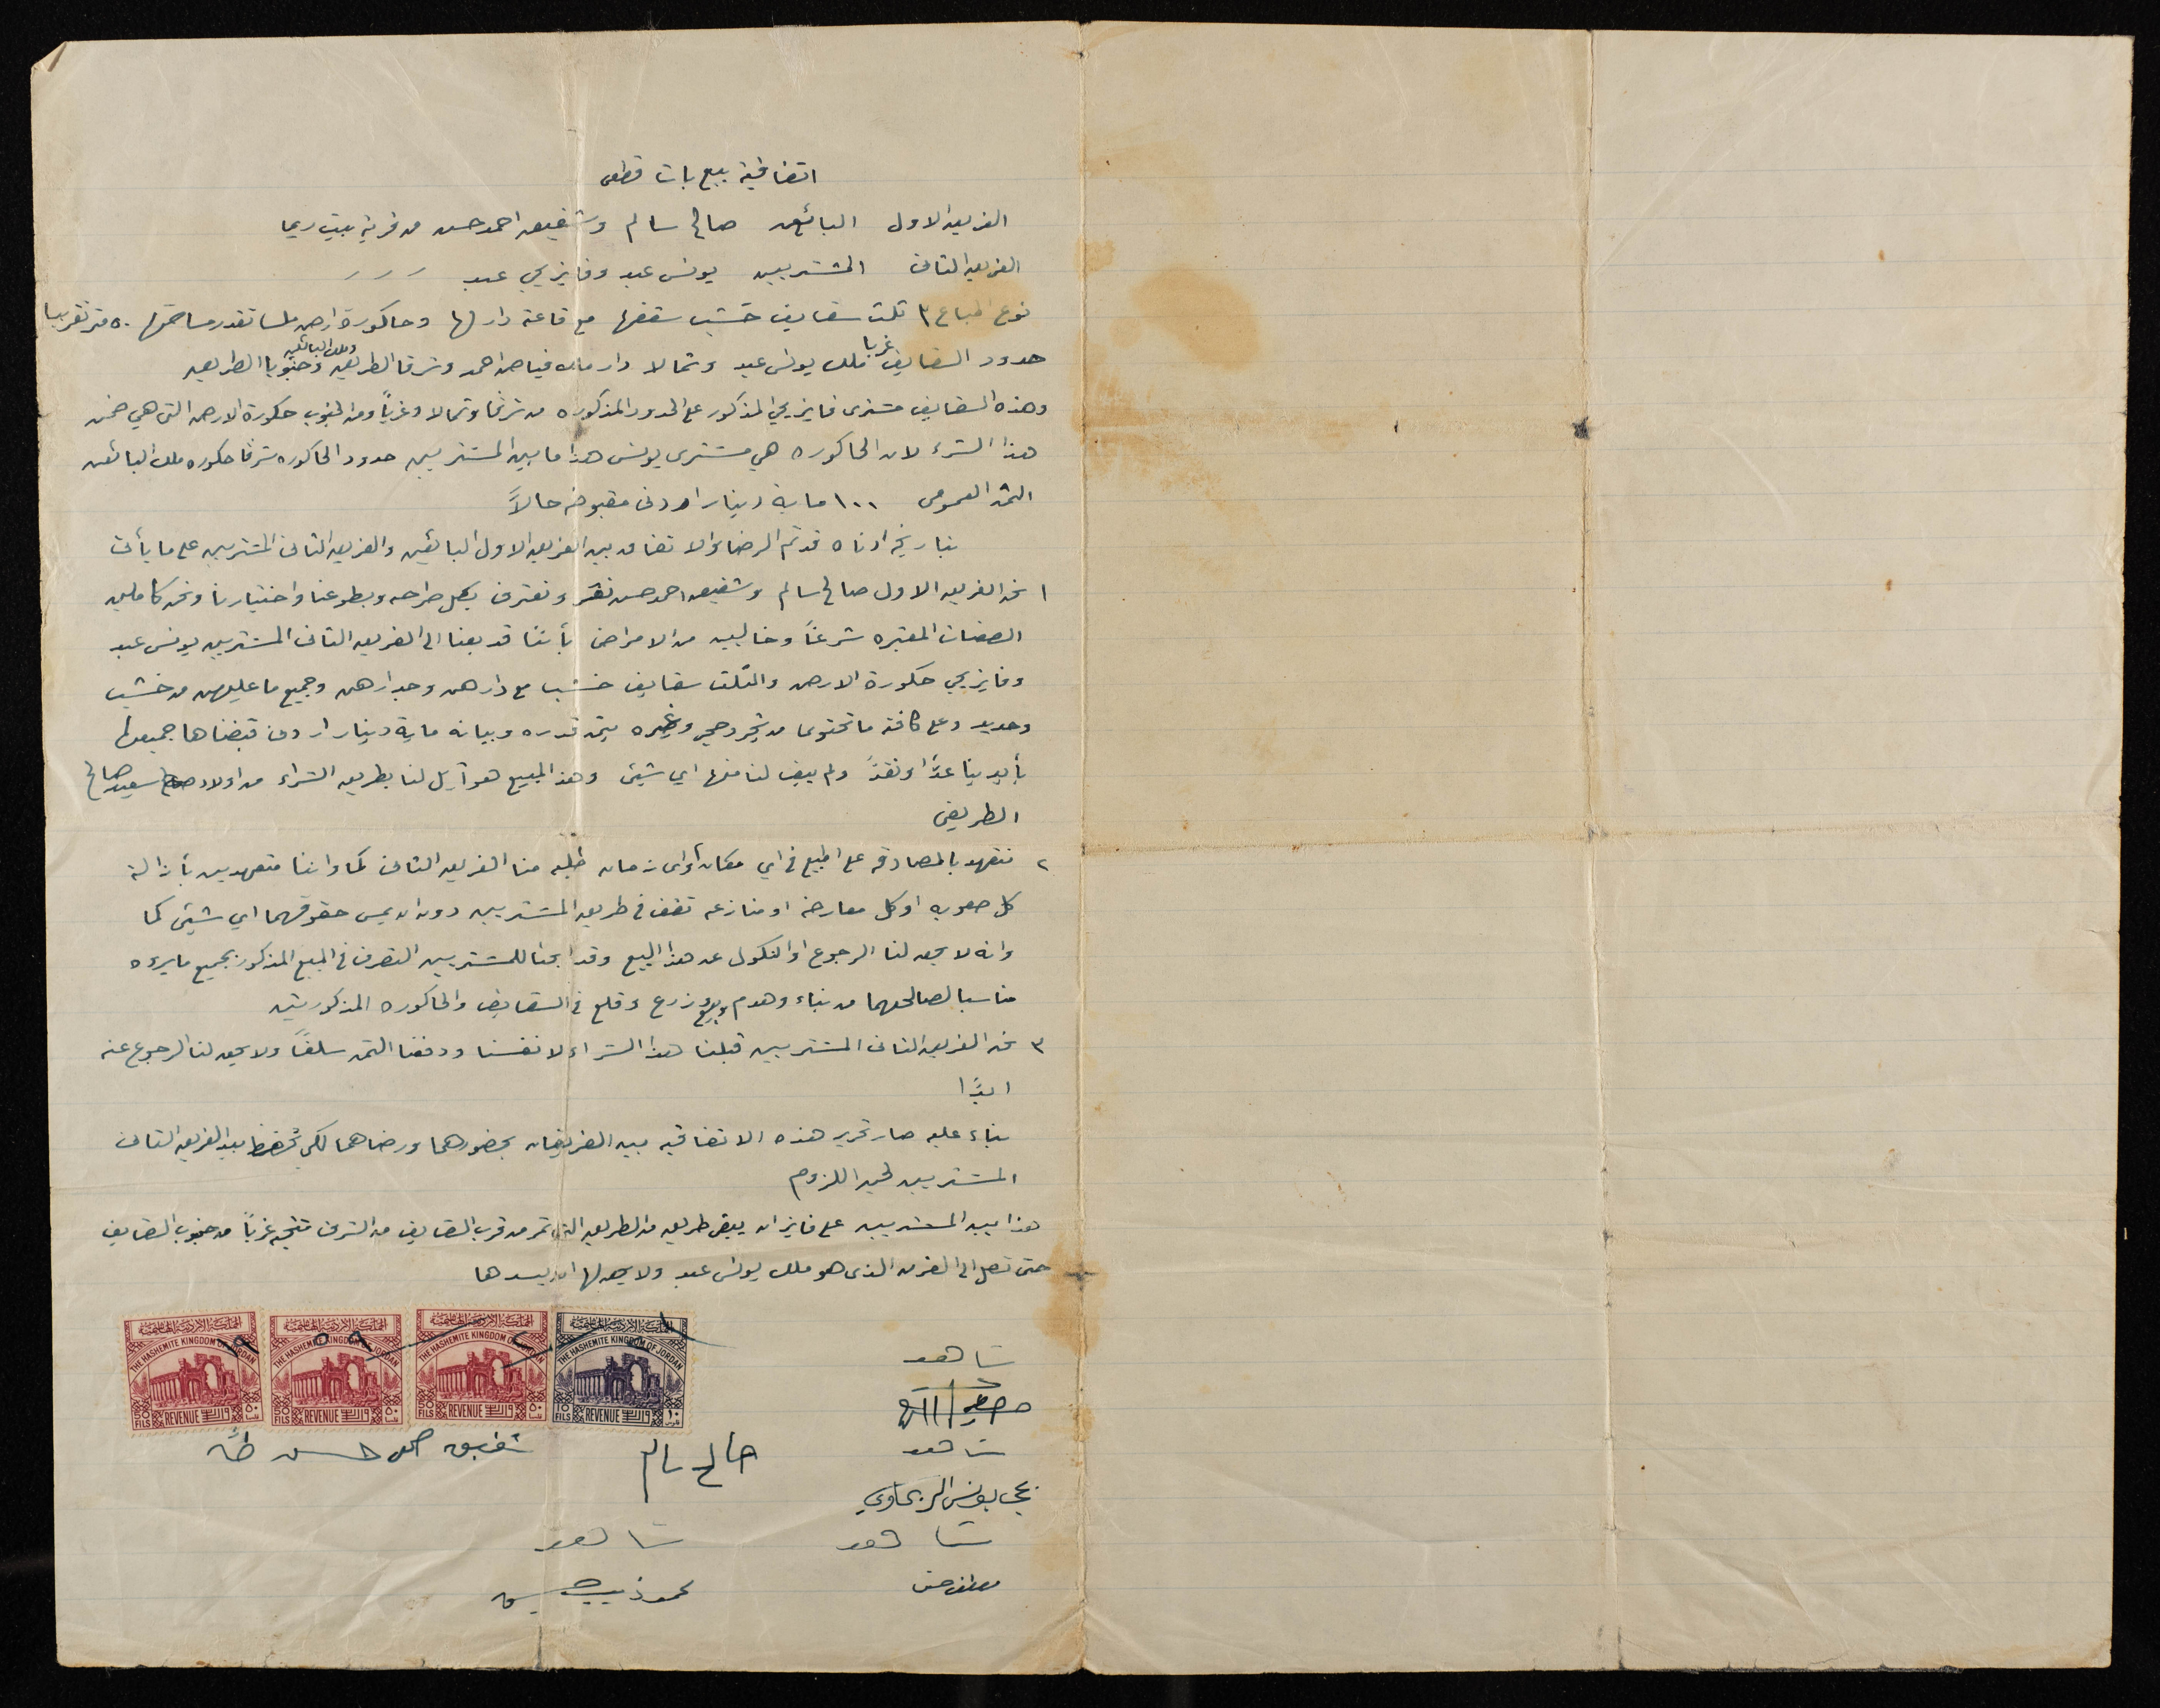 اتفاقية بيع بات قطعي
الفريق الاول البائعين صالح سالم وشفيق احمد حسن من قرية بيت ريما
الفريق الثاني المشتريين يونس عبد وفايز يحي عبد ٫ ٫ ٫
نوع المباع ٣ ثلث سقايف خشب سقفها مع قاعة دار لها وحاكورة ارض ملسا تقدر مساحتها ٥٠ متر تقريبا
حدود السقايف غربا ملك يونس عبد وشمالا دار ملك فياض احمد وشرقا الطريق وملك البائعين وجنوبا الطريق
وهذه السقايف مشترى فايز يحي المذكور على الحدود المذكوره من شرقا وشمالا وغربًا ومن الجنوب حكورة الارض التي هي ضمن
هذا الشراء لان الحاكوره هي مشترى يونس هذا ما بين المشتريين حدود الحاكوره شرقا حكوره ملك البائعين
الثمن العمومي ١٠٠ ماية دينار اردني مقبوضه حالاً
بتاريخه ادناه قد تم الرضا والاتفاق بين الفريق الاول البائعين والفريق الثاني المشتريين على ما يأتي
١ نحن الفريق الاول صالح سالم وشفيق احمد حسن نقر ونعترف بكل صراحه وبطوعنا واختيارنا ونحن كاملين
الصفات المعتبره شرعًا وخاليين من الامراض بأننا قد بعنا الى الفريق الثاني المشتريين يونس عبد
وفايز يحي حكورة الارض والثلث سقايف خشب مع دارهن وجدارهن وجميع ما عليهن من خشب
وحديد وعلى كافة ما تحتوى من شجر وحجر وغيره بثمن قدره وبيانه ماية دينار اردني قبضناها جميعها
بأيدينا عدًّا ونقدً ولم يبقى لنا منها اي شيئ وهذا المبيع هو آيل لنا بطريق الشراء من اولاد سعيد صالح
الطريفي
٢ نتعهد بالمصادقه على المبيع في اي مكان أو اي زمان طلبه منا الفريق الثاني كما واننا متعهدين بأزالة
كل صعوبه او كل معارضه او منازعه تقف في طريق المشتريين دون ان يمس حقوقهما اي شيئ كما
وانه لا يحق لنا الرجوع او النكول عن هذا البيع وقد ابحنا للمشتريين التصرف في المبيع المذكور بجميع ما يروه
مناسبا لصالحهما من بناء وهدم وبيع وزرع وقلع في السقايف والحاكوره المذكورتين
٣ نحن الفريق الثاني المشتريين قبلنا هذا الشراء لانفسنا ودفعنا الثمن سلفًا ولا يحق لنا الرجوع عنه
ابدًا
بناء عليه صار تحرير هذه الاتفاقيه بين الفريقان بحضورهما ورضاهما لكي تحفظ بيد الفريق الثاني
المشتريين لحين اللزوم
هذا بين المشتريين على فايز ان يبقى طريق من الطريق التي تمر من قرب السقايف من الشرق متجه غربًا من جنوب السقايف
حتى تصل الى الفرن الذي هو ملك يونس عبد ولا يحق لها ان يسدها
المملكة الاردنية الهاشمية THE HASHEMITE KINGDOM OF JORDAN 50 FILS REVENUE واردات ٥٠ فلس
المملكة الاردنية الهاشمية THE HASHEMITE KINGDOM OF JORDAN 50 FILS REVENUE واردات ٥٠ فلس
المملكة الاردنية الهاشمية THE HASHEMITE KINGDOM OF JORDAN 50 FILS REVENUE واردات ٥٠ فلس
المملكة الاردنية الهاشمية THE HASHEMITE KINGDOM OF JORDAN 10 FILS REVENUE واردات ١٠ فلس
شاهد
شاهد
صالح سالم
شفيق احمد حسن
يونس الريماوي
شاهد
شاهد
مصطفى حسن
محمود ذيب حسين